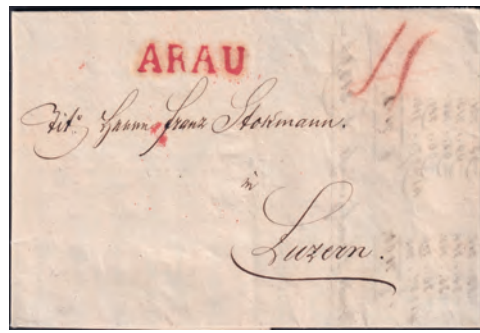 ARAU
Tit. Herrn Franz Stohmann.
in
Luzern.